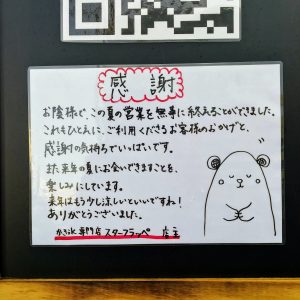 感謝
お陰様で、この夏の営業を無事に終えることができました。
これもひとえに、ご利用くださるお客様のおかげと、
感謝の気持ちでいっぱいです。
また来年の夏にお会いできますことを、
楽しみにしています。
来年はもう少し涼しいといいですね!
ありがとうございました。
かき氷専門店 スターフラッペ 店主